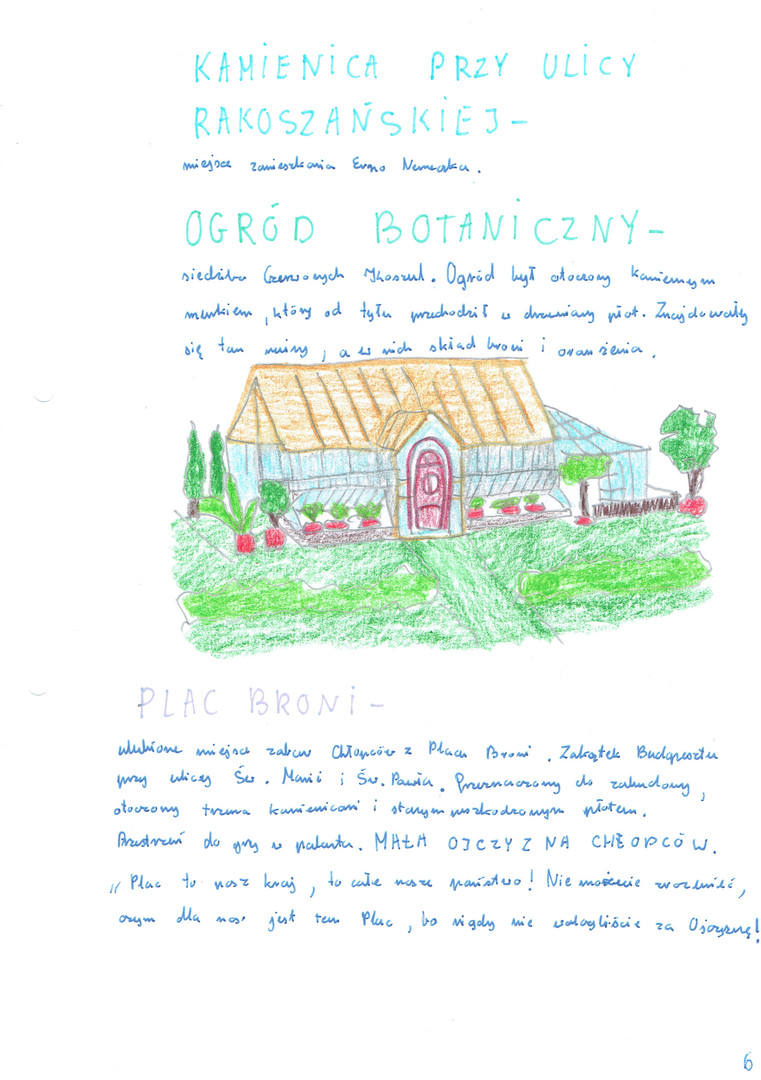 KAMIENICA PRZY ULICY
RAKOSZAŃSKIEJ -
miejsce zamieszkania Erno Nemeczka.
OGRÓD BOTANICZNY -
siedziba Czerwonych Koszul. Ogród był otoczony kamiennym
murkiem, który od tyłu przechodził w drewniany płot. Znajdowały
się tam ruiny, a w nich skład broni i oranżeria.
PLAC BRONI -
ulubione miejsce zabaw Chłopców z Placu Broni. Zakątek Budapesztu
przy ulicy Św. Marii i Św. Pawła. Przeznaczony do zabudowy,
otoczony trzema kamienicami i starym uszkodzonym płotem.
Przestrzeń do gry w palanta. MAŁA OJCZYZNA CHŁOPCÓW.
„Plac to nasz kraj, to całe nasze państwo! Nie możecie zrozumieć,
czym dla nas jest ten Plac, bo nigdy nie walczyliście za Ojczyznę!
6